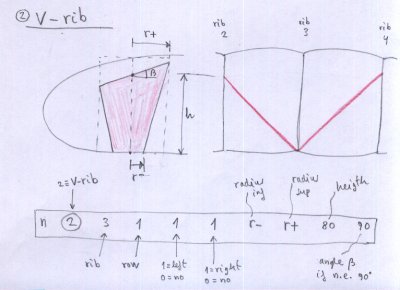 ② V-rib
r+
β
h
r-
rib
2
rib
3
rib
4
2=V-rib
radius
inf
radius
sup
heigth
n ② 3 1 1 1 r- r+ 80 90
rib
row
1=left
0=no
1=right
0=no
angle β
if n.e. 90°